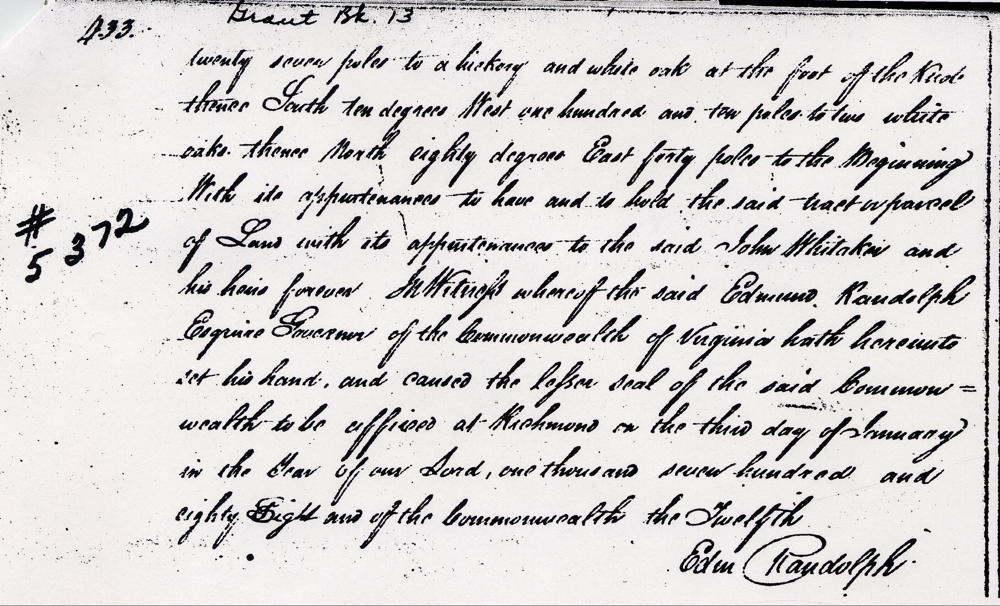 433.
Grant Bk. 13
twenty seven poles to a hickory and white oak at the foot of the
thence South ten degrees West one hundred and ten poles to two white
oaks. thence North eighty degrees East forty poles to the Beginning
With its appurtenances to have and to hold the said tract or parcel
of Land with its appurtenances to the said John Whitaker and
his heirs forever In Witness whereof the said Edmund Randolph
Esquire Governor of the Commonwealth of Virginia hath hereunto
set his hand, and caused the lesser seal of the said Common=
wealth to be affixed at Richmond on the third day of January
in the Year of our Lord, one thousand seven hundred and
eighty Eight and of the Commonwealth the Twelfth
Edm Randolph.
# 5372